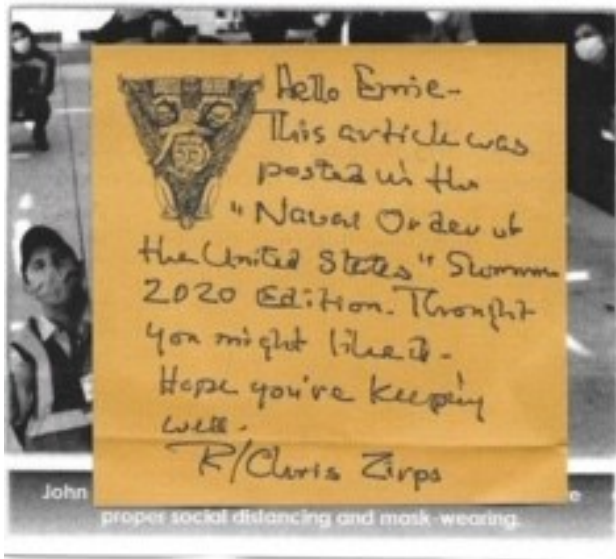 Hello Ernie-
This article was
posted in the
"Naval Order of
the United States" Summer
2020 Edition. Thought
you might like it-
Hope you're keeping
well.
R/Chris Zirps
John
proper social distancing and mask-wearing.